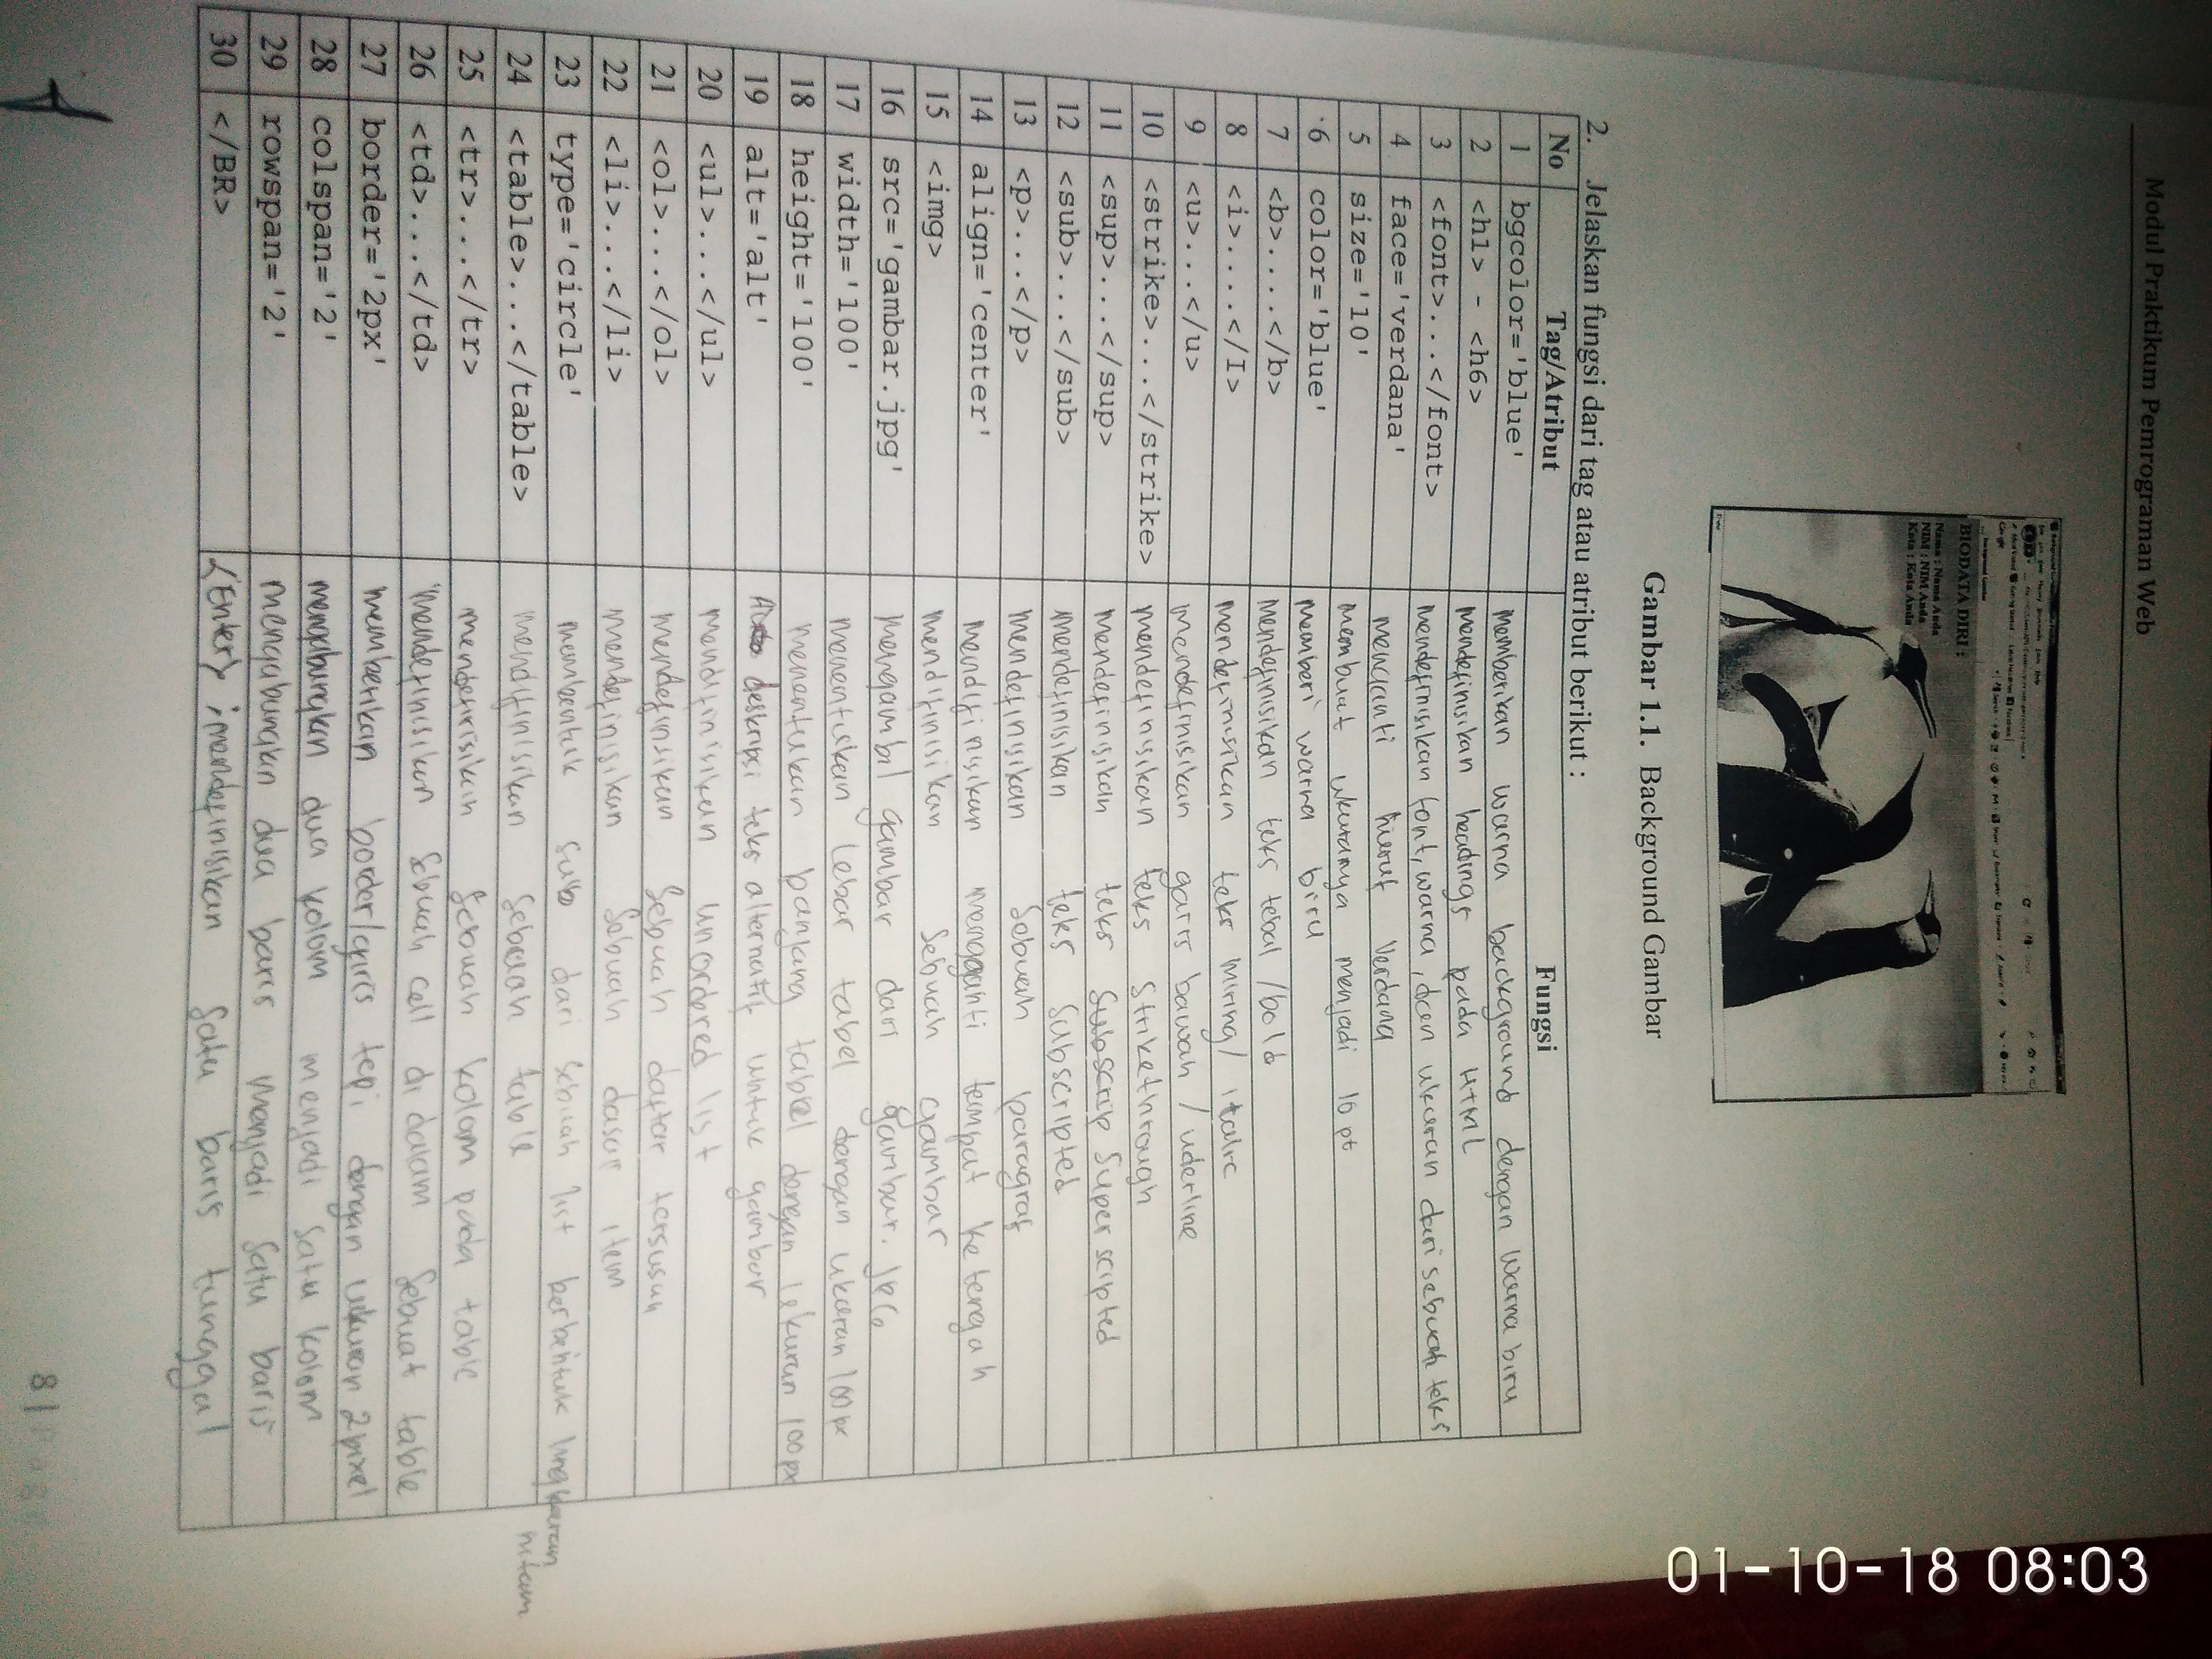 Modul Praktikum Pemrograman Web
BIODATA DIRI :
Nama : Nama Anda
NIM : NIM Anda
Kota : Kota Anda
Gambar 1.1. Background Gambar
2. Jelaskan fungsi dari tag atau atribut berikut :
No Tag/Atribut Fungsi
1 bgcolor='blue' memberikan warna background dengan warna biru
2 <h1> - <h6> mendefinisikan headings pada HTML
3 <font>...</font> mendefinisikan font, warna, dan ukuran dari sebuah teks
4 face='verdana' mengganti huruf Verdana
5 size='10' membuat ukuranya menjadi 10 pt
6 color='blue' memberi warna biru
7 <b>....</b> mendefinisikan teks tebal /bold
8 <i>....</I> mendefinisikan teks miring/ italic
9 <u>...</u> mendefinisikan garis bawah / uderline
10 <strike>...</strike> mendefinisikan teks Strikethrough
11 <sup>...</sup> mendefinisikan teks Subscrip Super scripted
12 <sub>...</sub> mendefinisikan teks Subscripted
13 <p>...</p> mendefinisikan Sebuah paragraf
14 align='center' mendifinisikan mengganti tempat ke tengah
15 <img> mendifinisikan Sebuah gambar
16 src='gambar.jpg' mengambil gambar dari gambar.
17 width='100' menentukan lebar tabel dengan ukuran 100 px
18 height='100' menentukan panjang tabel dengan ukuran 100 px
19 alt='alt' deskripsi teks alternatif untuk gambar
20 <ul>...</ul> mendifinisikan unordered list
21 <ol>...</ol> mendefinisikan Sebuah daftar tersusun
22 <li>...</li> mendefinisikan Sebuah dasar item
23 type='circle' membentuk sub dari sebuah list berbentuk lingkaran
hitam
24 <table>...</table> mendifinisikan Sebuah table
25 <tr>...</tr> mendefinisikan Sebuah kolom pada table
26 <td>...</td> mendefinisikan Sebuah cell di dalam Sebuat table
27 border='2px' memberikan border/garis tepi dengan ukuran 2 pixel
28 colspan='2' mengabungkan dua kolom menjadi satu kolom
29 rowspan='2' mengabungkan dua baris menjadi satu baris
30 </BR> <Enter> ; mendefinisikan Satu baris tunggal
8 | Page
01-10-18 08:03